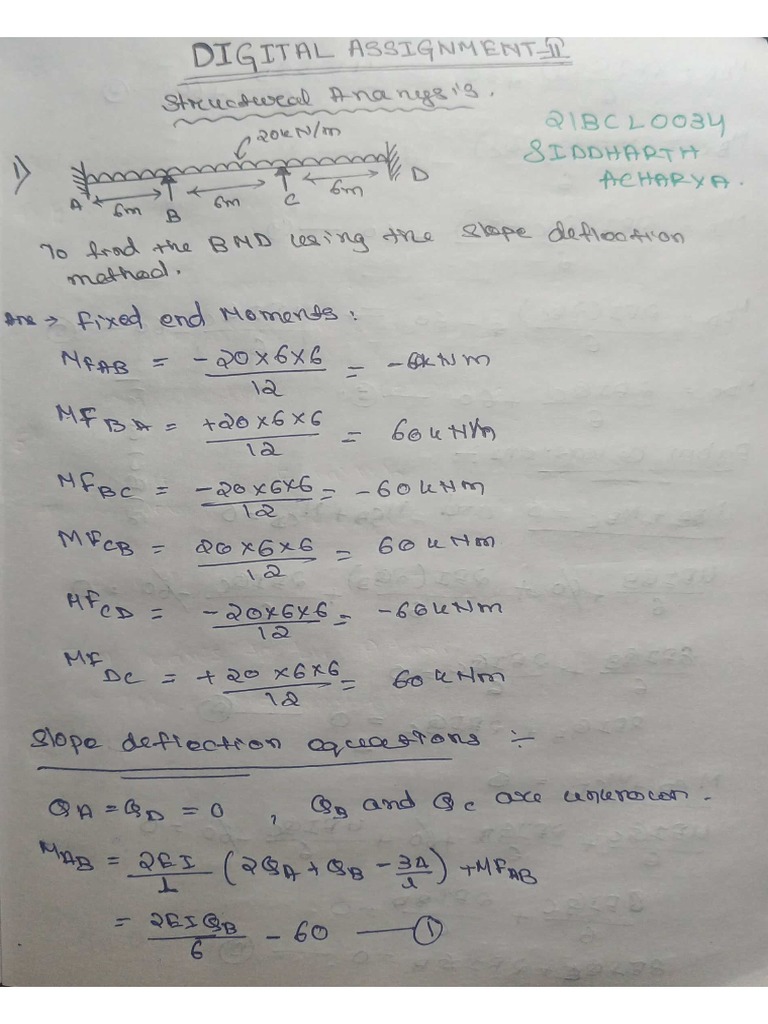 DIGITAL ASSIGNMENT-II
Structural Analysis.
21BCL0034
SIDDHARTH
ACHARYA.
1)
20kN/m
A 6m B 6m C 6m D
To find the BMD using the slope deflection
method.
Ans → Fixed end Moments:
MFAB = -20×6×6/12 = -60kNm
MFBA = +20×6×6/12 = 60kNm
MFBC = -20×6×6/12 = -60kNm
MFCB = 20×6×6/12 = 60kNm
MFCD = -20×6×6/12 = -60kNm
MFDC = +20×6×6/12 = 60kNm
Slope deflection equations :-
θA = θD = 0, θB and θC are unknown.
MAB = 2EI/L (2θA + θB - 3Δ/L) + MFAB
= 2EIθB/6 - 60 — ①